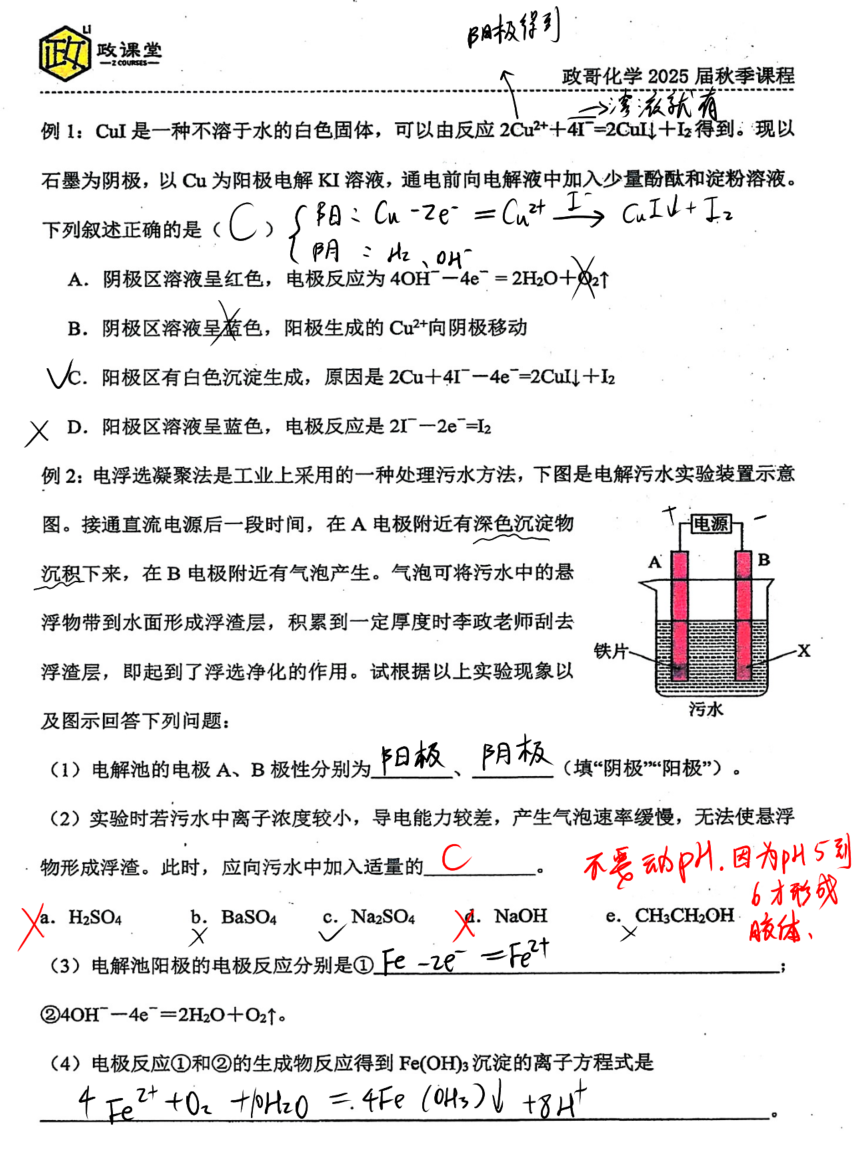 LI
政 政课堂
—2 COURSES—
阳极得到
政哥化学 2025 届秋季课程
→溶液就有
例 1：CuI 是一种不溶于水的白色固体，可以由反应 2Cu²⁺＋4I⁻=2CuI↓＋I₂得到。现以
石墨为阴极，以 Cu 为阳极电解 KI 溶液，通电前向电解液中加入少量酚酞和淀粉溶液。
下列叙述正确的是（ C ） 阳：Cu -2e⁻ = Cu²⁺ I⁻→ CuI↓+I₂
阴：H₂、OH⁻
A．阴极区溶液呈红色，电极反应为 4OH⁻－4e⁻ = 2H₂O＋O₂↑
B．阴极区溶液呈蓝色，阳极生成的 Cu²⁺向阴极移动
√C．阳极区有白色沉淀生成，原因是 2Cu＋4I⁻－4e⁻=2CuI↓＋I₂
× D．阳极区溶液呈蓝色，电极反应是 2I⁻－2e⁻=I₂
例 2：电浮选凝聚法是工业上采用的一种处理污水方法，下图是电解污水实验装置示意
图。接通直流电源后一段时间，在 A 电极附近有深色沉淀物
沉积下来，在 B 电极附近有气泡产生。气泡可将污水中的悬
浮物带到水面形成浮渣层，积累到一定厚度时李政老师刮去
浮渣层，即起到了浮选净化的作用。试根据以上实验现象以
及图示回答下列问题：
+ 电源 −
A B
铁片 X
污水
（1）电解池的电极 A、B 极性分别为 阳极 、 阴极 （填“阴极”“阳极”）。
（2）实验时若污水中离子浓度较小，导电能力较差，产生气泡速率缓慢，无法使悬浮
物形成浮渣。此时，应向污水中加入适量的 C 。
不要动pH.因为pH 5到
6才形成
胶体、
×a．H₂SO₄ b．BaSO₄ × c．Na₂SO₄ √ ×d．NaOH e．CH₃CH₂OH ×
（3）电解池阳极的电极反应分别是① Fe -2e⁻ =Fe²⁺ ；
②4OH⁻－4e⁻＝2H₂O＋O₂↑。
（4）电极反应①和②的生成物反应得到 Fe(OH)₃ 沉淀的离子方程式是
4Fe²⁺+O₂+10H₂O =.4Fe (OH₃)↓ +8H⁺ 。